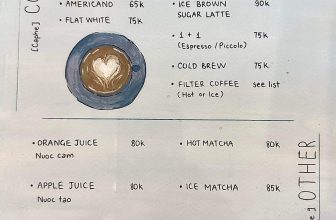 [Caphe]
• AMERICANO 65K
• FLAT WHITE 75K
• ICE BROWN 90K
SUGAR LATTE
• 1 + 1 75K
(Espresso / Piccolo)
• COLD BREW 75K
• FILTER COFFEE see list
(Hot or Ice)
• ORANGE JUICE 80K
Nuoc cam
• APPLE JUICE 80K
Nuoc tao
• HOT MATCHA 80K
• ICE MATCHA 85K
OTHER